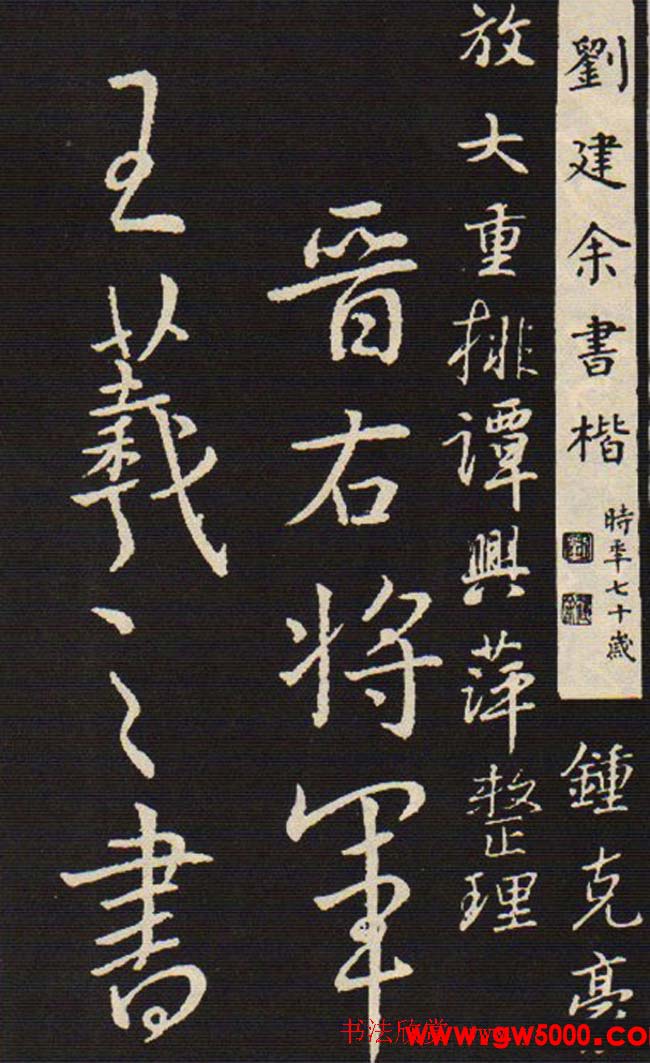 劉建余書楷
時年七十歲
鍾克亮
放大重排譚興萍整理
晋右将軍
王羲之書
书法欣赏 www.gw5000.co